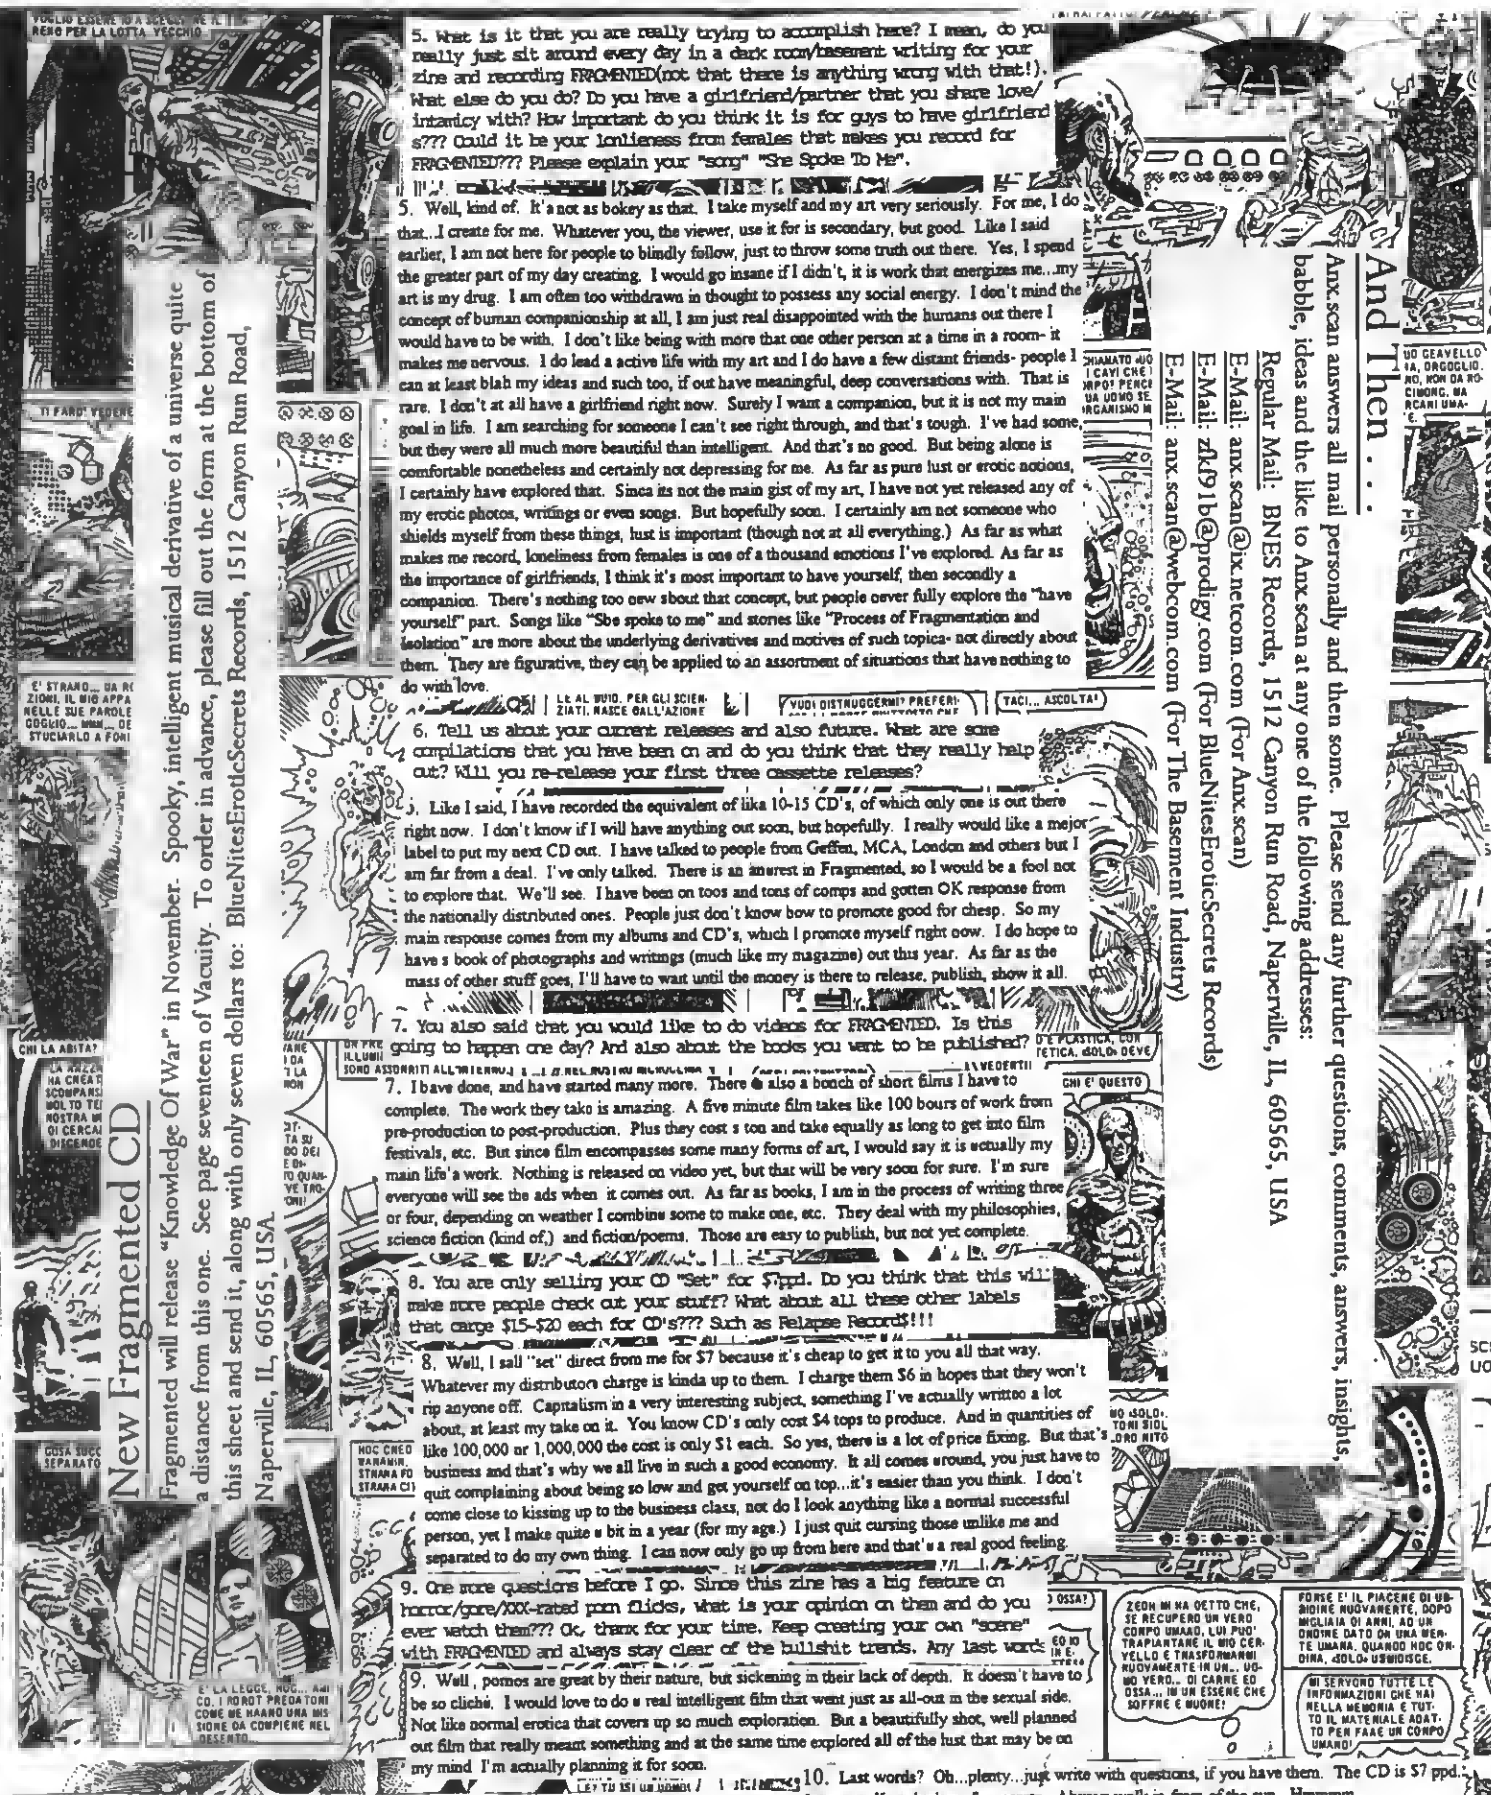 VOGLIO ESSERE IO A SCEGLIERE IL
RENO PER LA LOTTA, VECCHIO
5. What is it that you are really trying to accomplish here? I mean, do you
really just sit around every day in a dark room/basement writing for your
zine and recording FRAGMENTED(not that there is anything wrong with that!).
What else do you do? Do you have a girlfriend/partner that you share love/
intamicy with? How important do you think it is for guys to have girlfriend
s??? Could it be your lonlieness from females that makes you record for
FRAGMENTED??? Please explain your "song" "She Spoke To Me".
5. Well, kind of. It's not as hokey as that. I take myself and my art very seriously. For me, I do
that...I create for me. Whatever you, the viewer, use it for is secondary, but good. Like I said
earlier, I am not here for people to blindly follow, just to throw some truth out there. Yes, I spend
the greater part of my day creating. I would go insane if I didn't, it is work that energizes me...my
art is my drug. I am often too withdrawn in thought to possess any social energy. I don't mind the
concept of human companionship at all, I am just real disappointed with the humans out there I
would have to be with. I don't like being with more that one other person at a time in a room- it
makes me nervous. I do lead a active life with my art and I do have a few distant friends- people I
can at least blah my ideas and such too, if out have meaningful, deep conversations with. That is
rare. I don't at all have a girlfriend right now. Surely I want a companion, but it is not my main
goal in life. I am searching for someone I can't see right through, and that's tough. I've had some,
but they were all much more beautiful than intelligent. And that's no good. But being alone is
comfortable nonetheless and certainly not depressing for me. As far as pure lust or erotic notions,
I certainly have explored that. Since its not the main gist of my art, I have not yet released any of
my erotic photos, writings or even songs. But hopefully soon. I certainly am not someone who
shields myself from these things, lust is important (though not at all everything.) As far as what
makes me record, loneliness from females is one of a thousand emotions I've explored. As far as
the importance of girlfriends, I think it's most important to have yourself, then secondly a
companion. There's nothing too new about that concept, but people never fully explore the "have
yourself" part. Songs like "She spoke to me" and stories like "Process of Fragmentation and
Isolation" are more about the underlying derivatives and motives of such topica- not directly about
them. They are figurative, they can be applied to an assortment of situations that have nothing to
do with love.
LE AL BUIO. PER GLI SCIEN-
ZIATI, NASCE DALL'AZIONE
VUOI DISTRUGGERMI? PREFERI-
TACI... ASCOLTA!
6. Tell us about your current releases and also future. What are some
compilations that you have been on and do you think that they really help
out? Will you re-release your first three cassette releases?
Like I said, I have recorded the equivalent of like 10-15 CD's, of which only one is out there
right now. I don't know if I will have anything out soon, but hopefully. I really would like a major
label to put my next CD out. I have talked to people from Geffen, MCA, London and others but I
am far from a deal. I've only talked. There is an interest in Fragmented, so I would be a fool not
to explore that. We'll see. I have been on tons and tons of comps and gotten OK response from
the nationally distributed ones. People just don't know how to promote good for cheap. So my
main response comes from my albums and CD's, which I promote myself right now. I do hope to
have a book of photographs and writings (much like my magazine) out this year. As far as the
mass of other stuff goes, I'll have to wait until the money is there to release, publish, show it all.
7. You also said that you would like to do videos for FRAGMENTED. Is this
going to happen one day? And also about the books you want to be published?
7. I have done, and have started many more. There also a bonch of short films I have to
complete. The work they take is amazing. A five minute film takes like 100 hours of work from
pre-production to post-production. Plus they cost a ton and take equally as long to get into film
festivals, etc. But since film encompasses some many forms of art, I would say it is actually my
main life's work. Nothing is released on video yet, but that will be very soon for sure. I'm sure
everyone will see the ads when it comes out. As far as books, I am in the process of writing three
or four, depending on weather I combine some to make one, etc. They deal with my philosophies,
science fiction (kind of,) and fiction/poems. Those are easy to publish, but not yet complete.
8. You are only selling your CD "Set" for $7ppd. Do you think that this will
make more people check out your stuff? What about all these other labels
that carge $15-$20 each for CD's??? Such as Relapse Record$!!!!
8. Well, I sall "set" direct from me for $7 because it's cheap to get it to you all that way.
Whatever my distributors charge is kinda up to them. I charge them $6 in hopes that they won't
rip anyone off. Capitalism in a very interesting subject, something I've actually written a lot
about, at least my take on it. You know CD's only cost $4 tops to produce. And in quantities of
like 100,000 or 1,000,000 the cost is only $1 each. So yes, there is a lot of price fixing. But that's
business and that's why we all live in such a good economy. It all comes around, you just have to
quit complaining about being so low and get yourself on top...it's easier than you think. I don't
come close to kissing up to the business class, not do I look anything like a normal successful
person, yet I make quite a bit in a year (for my age.) I just quit cursing those unlike me and
separated to do my own thing. I can now only go up from here and that's a real good feeling.
9. One more questions before I go. Since this zine has a big feature on
horror/gore/XXX-rated porn flicks, what is your opinion on them and do you
ever watch them??? Ok, thank for your time. Keep creating your own "scene"
with FRAGMENTED and always stay clear of the bullshit trends. Any last words
9. Well, pornos are great by their nature, but sickening in their lack of depth. It doesn't have to
be so cliché. I would love to do a real intelligent film that went just as all-out in the sexual side.
Not like normal erotica that covers up so much exploration. But a beautifully shot, well planned
out film that really meant something and at the same time explored all of the lust that may be on
my mind I'm actually planning it for soon.
10. Last words? Oh...plenty...just write with questions, if you have them. The CD is $7 ppd.
New Fragmented CD
Fragmented will release "Knowledge Of War" in November- Spooky, intelligent musical derivative of a universe quite
a distance from this one. See page seventeen of Vacuity. To order in advance, please fill out the form at the bottom of
this sheet and send it, along with only seven dollars to: BlueNitesEroticSecrets Records, 1512 Canyon Run Road,
Naperville, IL, 60565, USA
And Then . . .
Anx.scan answers all mail personally and then some. Please send any further questions, comments, answers, insights,
babble, ideas and the like to Anx.scan at any one of the following addresses:
Regular Mail: BNES Records, 1512 Canyon Run Road, Naperville, IL, 60565, USA
E-Mail: anx.scan@ix.netcom.com (For Anx.scan)
E-Mail: zfkf91b@prodigy.com (For BlueNitesEroticSecrets Records)
E-Mail: anx.scan@webcom.com (For The Basement Industry)
TI FARO' VEDERE
CHI LA ABITA?
CHI E' QUESTO
E' LA LEGGE, HOC...
CO. I ROBOT PREDATORI
COME ME HANNO UNA MIS-
SIONE DA COMPIERE NEL
DESERTO...
ZEOH MI HA DETTO CHE,
SE RECUPERO UN VERO
CORPO UMANO, LUI PUO'
TRAPIANTARE IL MIO CER-
VELLO E TRASFORMARMI
NUOVAMENTE IN UN... UO-
MO VERO... DI CARNE ED
OSSA... IN UN ESSERE CHE
SOFFRE E MUORE!
FORSE E' IL PIACERE DI UB-
BIDIRE NUOVAMENTE, DOPO
MIGLIAIA DI ANNI, AD UN
ORDINE DATO DA UNA MEN-
TE UMANA. QUANDO HOC OR-
DINA, «SOLO» UBBIDISCE.
MI SERVONO TUTTE LE
INFORMAZIONI CHE HAI
NELLA MEMORIA E TUT-
TO IL MATERIALE ADAT-
TO PER FARE UN CORPO
UMANO!